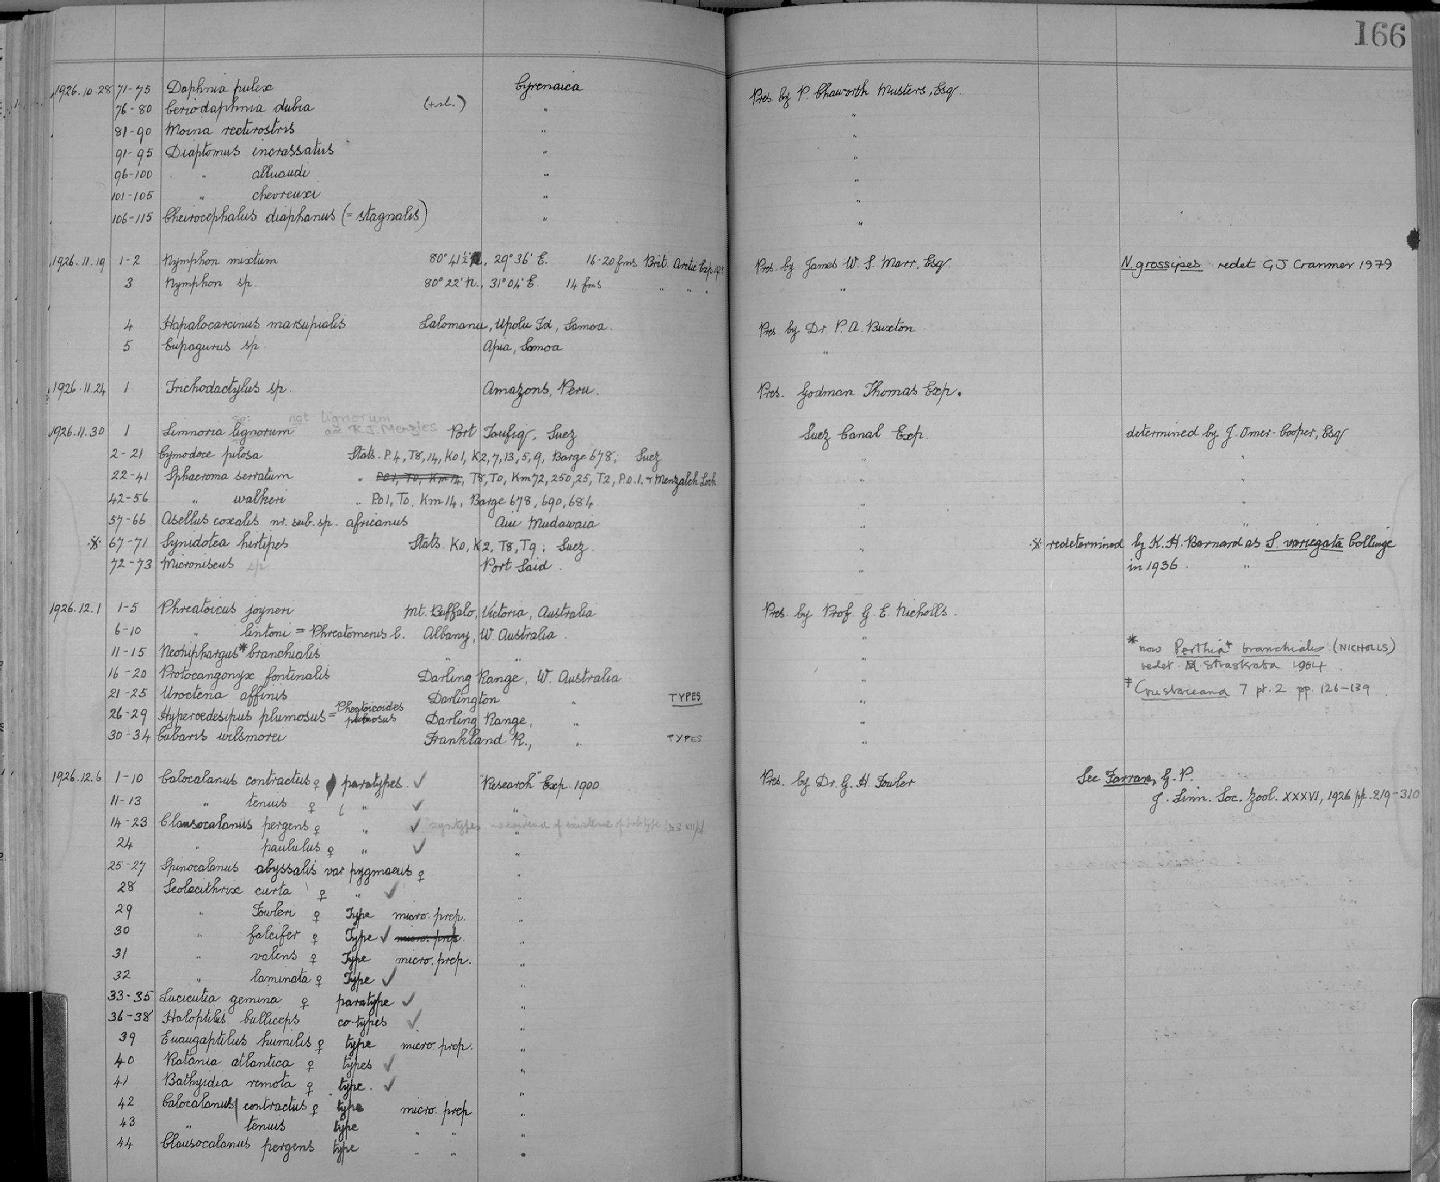 166
1926.10.28 71-75 Daphnia pulex Cyrenaica Pres. by P. Chaworth Musters, Esq.
76-80 Ceriodaphnia dubia " "
81-90 Moina rectirostris " "
91-95 Diaptomus incrassatus " "
96-100 " alluaudi " "
101-105 " chevreuxi " "
106-115 Cheirocephalus diaphanus (= stagnalis) " "
1926.11.19 1-2 Nymphon mixtum 80° 41½' N., 29° 36' E. 16-20 fms Brit. Arctic Exp. Pres. by James W. S. Marr, Esq. N. grossipes redet GJ Cranmer 1979
3 Nymphon sp. 80° 22' N., 31° 04' E. 14 fms " " " "
4 Hapalocarcinus marsupialis Salomanu, Upolu Id, Samoa. Pres by Dr P. A. Buxton
5 Eupagurus sp. Apia, Samoa "
1926.11.24 1 Trichodactylus sp. Amazons, Peru. Pres. Godman Thomas Exp.
sp: not lignorum
det R.J. Menzies
1926.11.30 1 Limnoria lignorum Port Taufiq, Suez Suez Canal Exp. determined by J. Omer-Cooper, Esq
2-21 Cymodoce pilosa Stats. P.4, T8, 14, K01, K2, 7, 13, 5, 9, Barge 678; Suez " "
22-41 Sphaeroma serratum " P01, T0, Km 14, T8, T0, Km 72, 250, 25, T2, P.0.1. + Menzaleh Lock " "
42-56 " walkeri " P01, T0, Km 14, Barge 678, 690, 684 " "
57-66 Asellus coxalis nr. sub. sp. africanus Ain Mudawaia " "
※ 67-71 Synidotea hirtipes Stats. K0, K2, T8, T9; Suez. " ※ redetermined by K. H. Barnard as S. variegata Collinge
72-73 Microniscus sp. Port Said. " in 1936. "
1926.12.1 1-5 Phreatoicus joyneri Mt. Buffalo, Victoria, Australia Pres. by Prof G. E. Nicholls.
6-10 " lintoni = Phreatomerus l. Albany, W. Australia. "
11-15 Neoniphargus* branchialis " " " * now Perthia‡ branchialis (NICHOLLS)
redet. Straskraba 1964.
16-20 Protocrangonyx fontinalis Darling Range, W. Australia "
‡ Crustaceana 7 pt. 2 pp. 126-139
21-25 Uroctena affinis Darlington " TYPES "
26-29 Hyperoedesipus plumosus = Phreatoicoides plumosus Darling Range, "
30-34 Cubaris wilsmorei Frankland R., " TYPES "
1926.12.6 1-10 Calocalanus contractus ♀ paratypes ✓ "Research" Exp. 1900 Pres. by Dr. G. H. Fowler See Farran, G. P.
J. Linn. Soc. Zool. XXXVI, 1926 pp. 219-310
11-13 " tenuis ♀ " ✓ "
14-23 Clausocalanus pergens ♀ " ✓ syntypes no evidence of existence of holotype "
24 " paululus ♀ " ✓ "
25-27 Spinocalanus abyssalis var pygmaeus ♀ "
28 Scolecithrix curta ♀ " ✓ "
29 " Fowleri ♀ Type micro. prep. "
30 " falcifer ♀ Type ✓ micro. prep. "
31 " valens ♀ Type micro. prep. "
32 " laminata ♀ Type ✓ "
33-35 Lucicutia gemina ♀ paratype ✓ "
36-38 Haloptilus bulliceps co-types ✓ "
39 Euaugaptilus humilis ♀ type micro. prep. "
40 Ratania atlantica ♀ types ✓ "
41 Bathyidia remota ♀ type. ✓ "
42 Calocalanus contractus ♀ type micro. prep "
43 " tenuis type "
44 Clausocalanus pergens type " " "